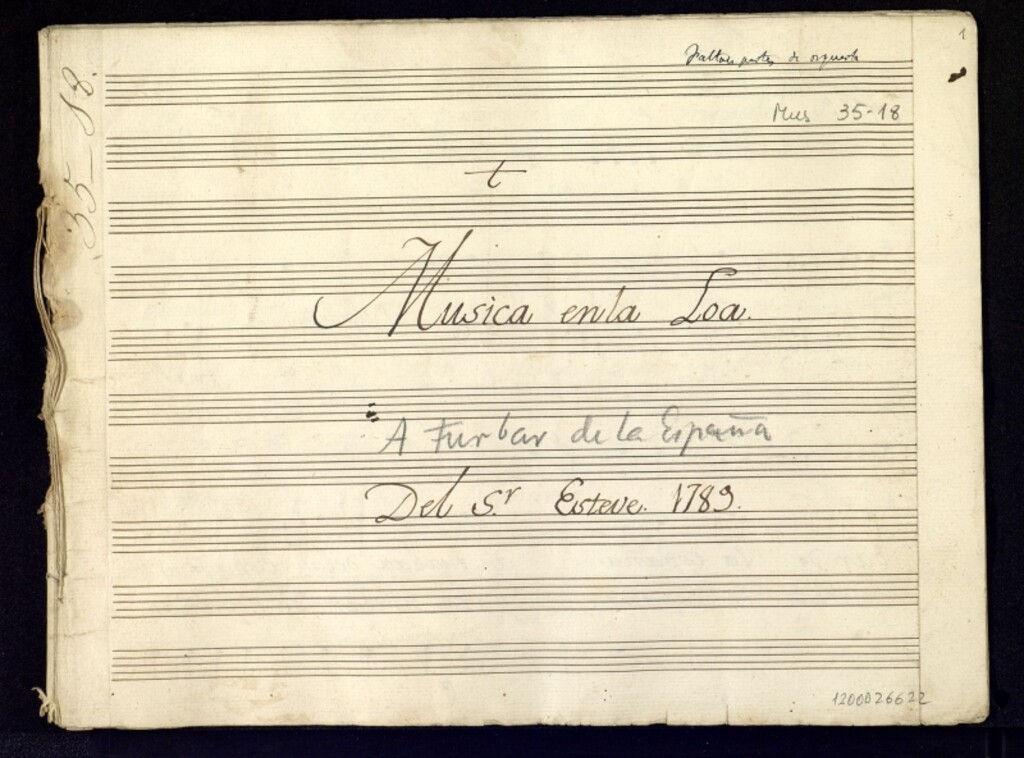 1
Faltan partes de orquesta
Mus 35-18
35-18.
t
Musica en la Loa.
A Turbar de la España
Del S.r Esteve. 1789.
1200026622